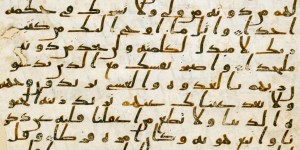 لهم من دونه من ولي ولا يشرك في حكمه
احدا واتل ما اوحي اليك من كتب
ربك لا مبدل لكلمته ولن تجد من دونه
ملتحدا واصبر نفسك مع الذين يدعو
ن ربهم بالغدوة والعشي يريدون وجهه
ولا تعد عينك عنهم تريد زينة الحيو
ة الدنيا ولا تطع من اغفلنا قلبه عن ذكر
نا واتبع هويه وكان امره فرطا وقل